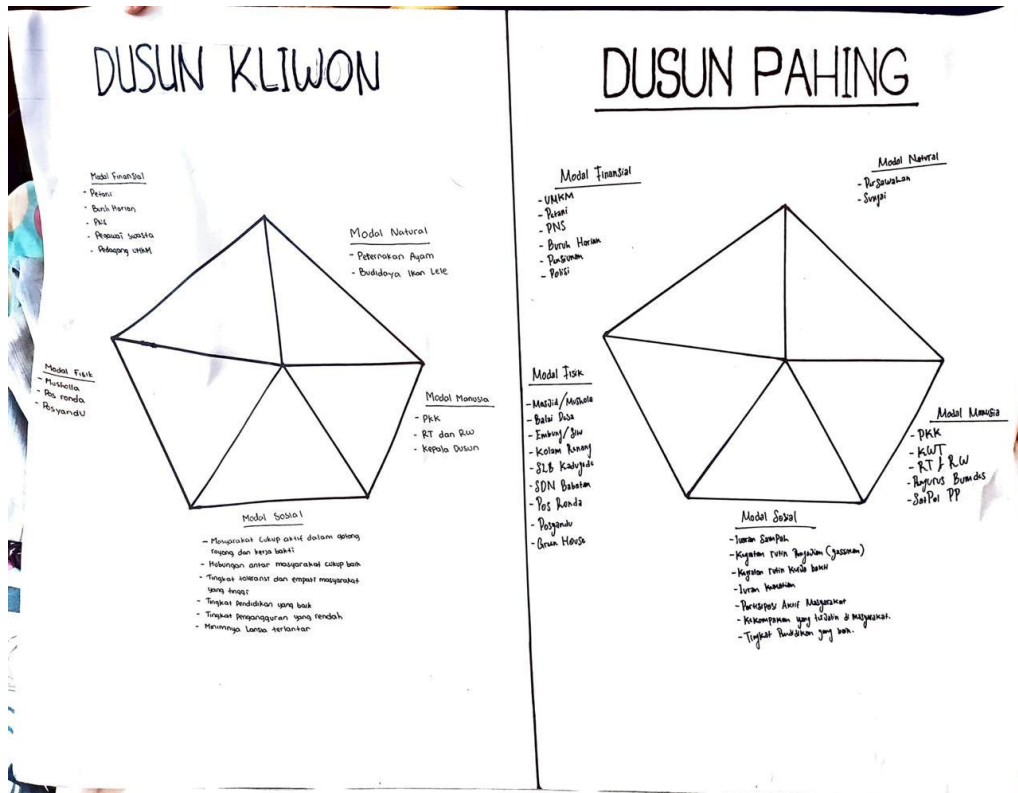 DUSUN KLIWON
Modal Finansial
- Petani
- Buruh Harian
- PNS
- Pegawai Swasta
- Pedagang UMKM
Modal Natural
- Peternakan Ayam
- Budidaya Ikan Lele
Modal Fisik
- Musholla
- Pos ronda
- Posyandu
Modal Manusia
- PKK
- RT dan RW
- Kepala Dusun
Modal Sosial
- Masyarakat cukup aktif dalam gotong
royong dan kerja bakti
- Hubungan antar masyarakat cukup baik
- Tingkat toleransi dan empati masyarakat
yang tinggi
- Tingkat pendidikan yang baik
- Tingkat pengangguran yang rendah
- Minimnya Lansia terlantar
DUSUN PAHING
Modal Finansial
- UMKM
- Petani
- PNS
- Buruh Harian
- Pensiunan
- Polisi
Modal Natural
- Persawahan
- Sungai
Modal Fisik
- Masjid/Mushola
- Balai Desa
- Embung/
- Kolam Renang
- SLB Kadugede
- SDN Babatan
- Pos Ronda
- Posyandu
- Green House
Modal Manusia
- PKK
- KWT
- RT & RW
- Pengurus Bumdes
- SatPol PP
Modal Sosial
- Iuran Sampah
- Kegiatan rutin Pengajian
- Kegiatan rutin Kerja bakti
- Iuran Kematian
- Partisipasi Aktif Masyarakat
- Kekompakan yang terjalin di masyarakat.
- Tingkat Pendidikan yang baik.